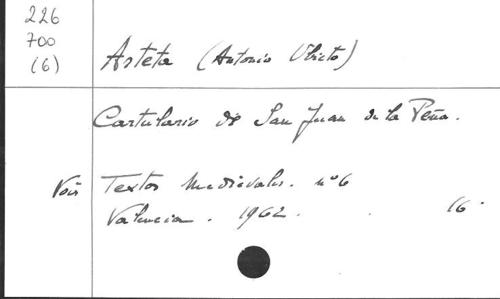 226
700
(6)
Asteta (Antonio Ubieto)
Cartulario de San Juan de la Peña.
Voir Textos Medievales. nº 6
Valencia. 1962. 16